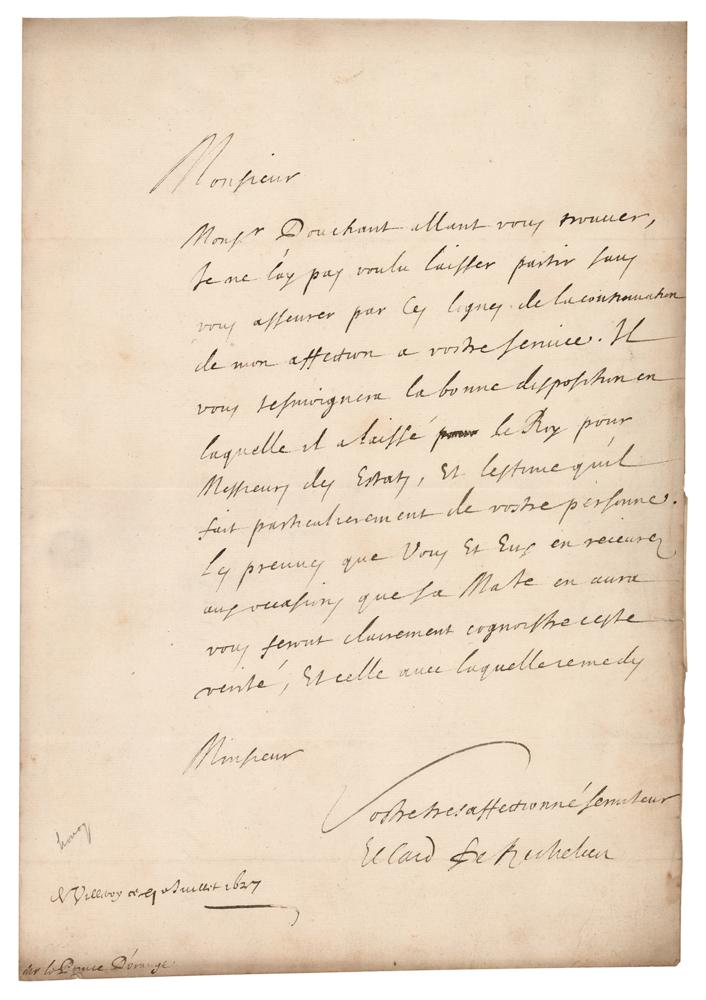 Monsieur
Monsr Douchant allant vous trouver,
Je ne l'ay pas voulu laisser partir sans
vous asseurer par Ces lignes de la continuation
de mon affection a vostre service. Il
vous tesmoignera la bonne disposition en
laquelle il a laissé le Roy pour
Messieurs des Estats, Et l'estime qu'il
fait particulierement de vostre personne.
Les preuves que Vous Et Eux en recevrez
aux occasions que sa Maté en aura
vous feront clairement cognoistre ceste
verité, Et celle avec laquelle Je me dis
Monsieur
Vostre tres affectionné serviteur
Le Card de Richelieu
A Villeroy ce Juillet 1627
Mr le Prince D'orange